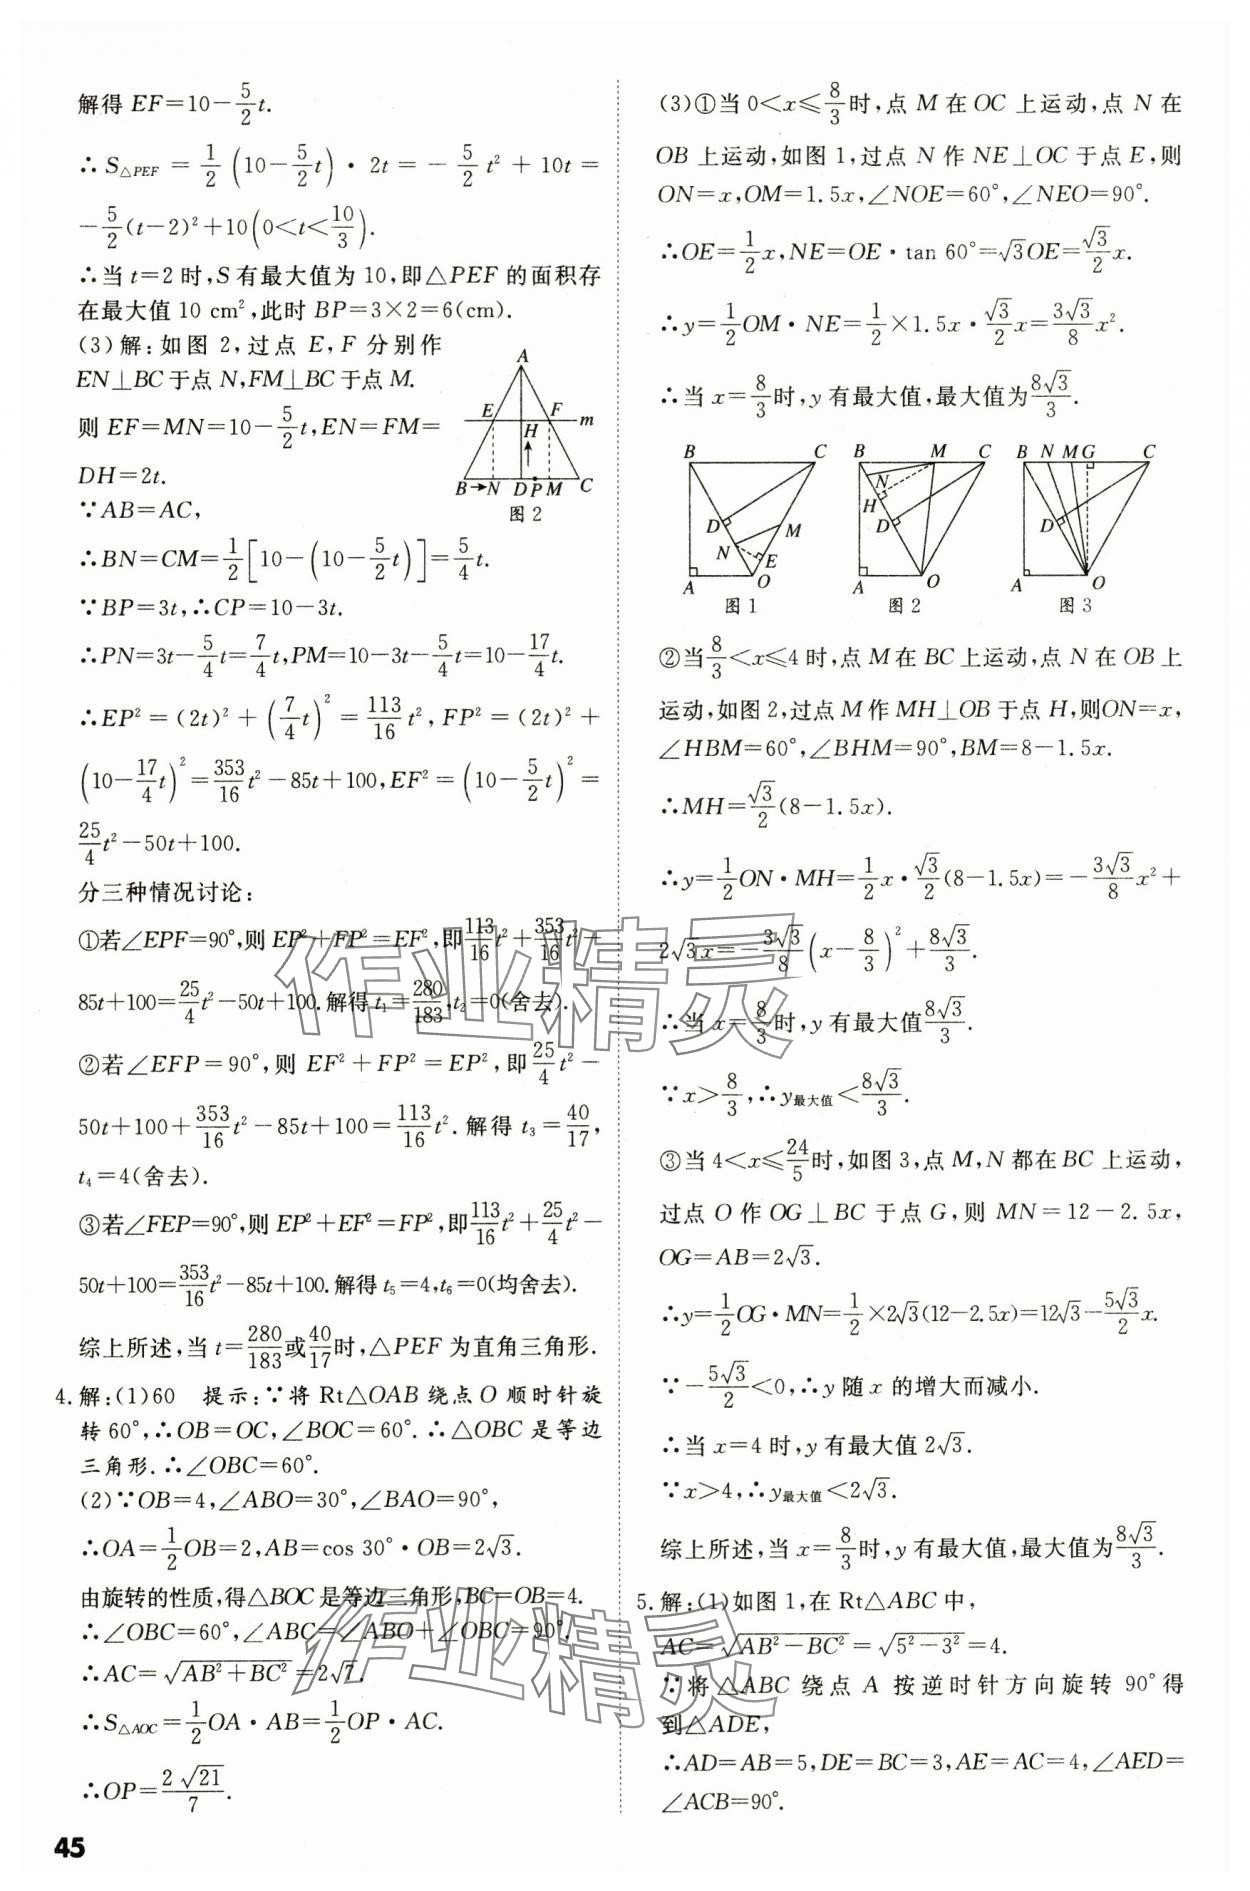 解得 EF=10-5/2t.
∴S△PEF = 1/2(10-5/2t)·2t=-5/2t²+10t=
-5/2(t-2)²+10(0<t<10/3).
∴当 t=2 时,S 有最大值为 10,即△PEF 的面积存
在最大值 10 cm²,此时 BP=3×2=6(cm).
(3)解:如图 2,过点 E,F 分别作
EN⊥BC于点 N,FM⊥BC于点 M.
则 EF=MN=10-5/2t,EN=FM=
DH=2t.
∵AB=AC,
A
E F m
H
B N D P M C
图 2
∴BN=CM=1/2[10-(10-5/2t)]=5/4t.
∵BP=3t,∴CP=10-3t.
∴PN=3t-5/4t=7/4t,PM=10-3t-5/4t=10-17/4t.
∴EP²=(2t)²+(7/4t)²=113/16t²,FP²=(2t)²+
(10-17/4t)²=353/16t²-85t+100,EF²=(10-5/2t)²=
25/4t²-50t+100.
分三种情况讨论:
①若∠EPF=90°,则 EP²+FP²=EF²,即113/16t²+353/16t²-
85t+100=25/4t²-50t+100.解得 t₁=280/183,t₂=0(舍去).
②若∠EFP=90°,则 EF²+FP²=EP²,即25/4t²-
50t+100+353/16t²-85t+100=113/16t².解得 t₃=40/17,
t₄=4(舍去).
③若∠FEP=90°,则 EP²+EF²=FP²,即113/16t²+25/4t²-
50t+100=353/16t²-85t+100.解得 t₅=4,t₆=0(均舍去).
综上所述,当 t=280/183或40/17时,△PEF 为直角三角形.
4.解:(1)60 提示:∵将 Rt△OAB 绕点 O 顺时针旋
转60°,∴OB=OC,∠BOC=60°.∴△OBC 是等边
三角形.∴∠OBC=60°.
(2)∵OB=4,∠ABO=30°,∠BAO=90°,
∴OA=1/2OB=2,AB=cos 30°·OB=2√3.
由旋转的性质,得△BOC是等边三角形,BC=OB=4.
∴∠OBC=60°,∠ABC=∠ABO+∠OBC=90°.
∴AC=√(AB²+BC²)=2√7.
∴S△AOC=1/2OA·AB=1/2OP·AC.
∴OP=2√21/7.
(3)①当 0<x≤8/3时,点 M 在 OC 上运动,点 N 在
OB 上运动,如图 1,过点 N 作 NE⊥OC 于点 E,则
ON=x,OM=1.5x,∠NOE=60°,∠NEO=90°.
∴OE=1/2x,NE=OE·tan 60°=√3OE=√3/2x.
∴y=1/2OM·NE=1/2×1.5x·√3/2x=3√3/8x².
∴当 x=8/3时,y 有最大值,最大值为8√3/3.
B C D M N E A O
图 1
B M C N H D A O
图 2
B N M G C D A O
图 3
②当8/3<x≤4 时,点 M 在 BC 上运动,点 N 在 OB 上
运动,如图 2,过点 M 作 MH⊥OB 于点 H,则ON=x,
∠HBM=60°,∠BHM=90°,BM=8-1.5x.
∴MH=√3/2(8-1.5x).
∴y=1/2ON·MH=1/2x·√3/2(8-1.5x)=-3√3/8x²+
2√3x=-3√3/8(x-8/3)²+8√3/3.
∴当 x=8/3时,y 有最大值8√3/3.
∵x>8/3,∴y最大值<8√3/3.
③当 4<x≤24/5时,如图 3,点 M,N 都在 BC 上运动,
过点 O 作 OG⊥BC 于点 G,则 MN=12-2.5x,
OG=AB=2√3.
∴y=1/2OG·MN=1/2×2√3(12-2.5x)=12√3-5√3/2x.
∵-5√3/2<0,∴y 随 x 的增大而减小.
∴当 x=4 时,y 有最大值 2√3.
∵x>4,∴y最大值<2√3.
综上所述,当 x=8/3时,y 有最大值,最大值为8√3/3.
5.解:(1)如图 1,在 Rt△ABC 中,
AC=√(AB²-BC²)=√(5²-3²)=4.
∵将△ABC 绕点 A 按逆时针方向旋转 90°得
到△ADE,
∴AD=AB=5,DE=BC=3,AE=AC=4,∠AED=
∠ACB=90°.
45
作业精灵
作业精灵